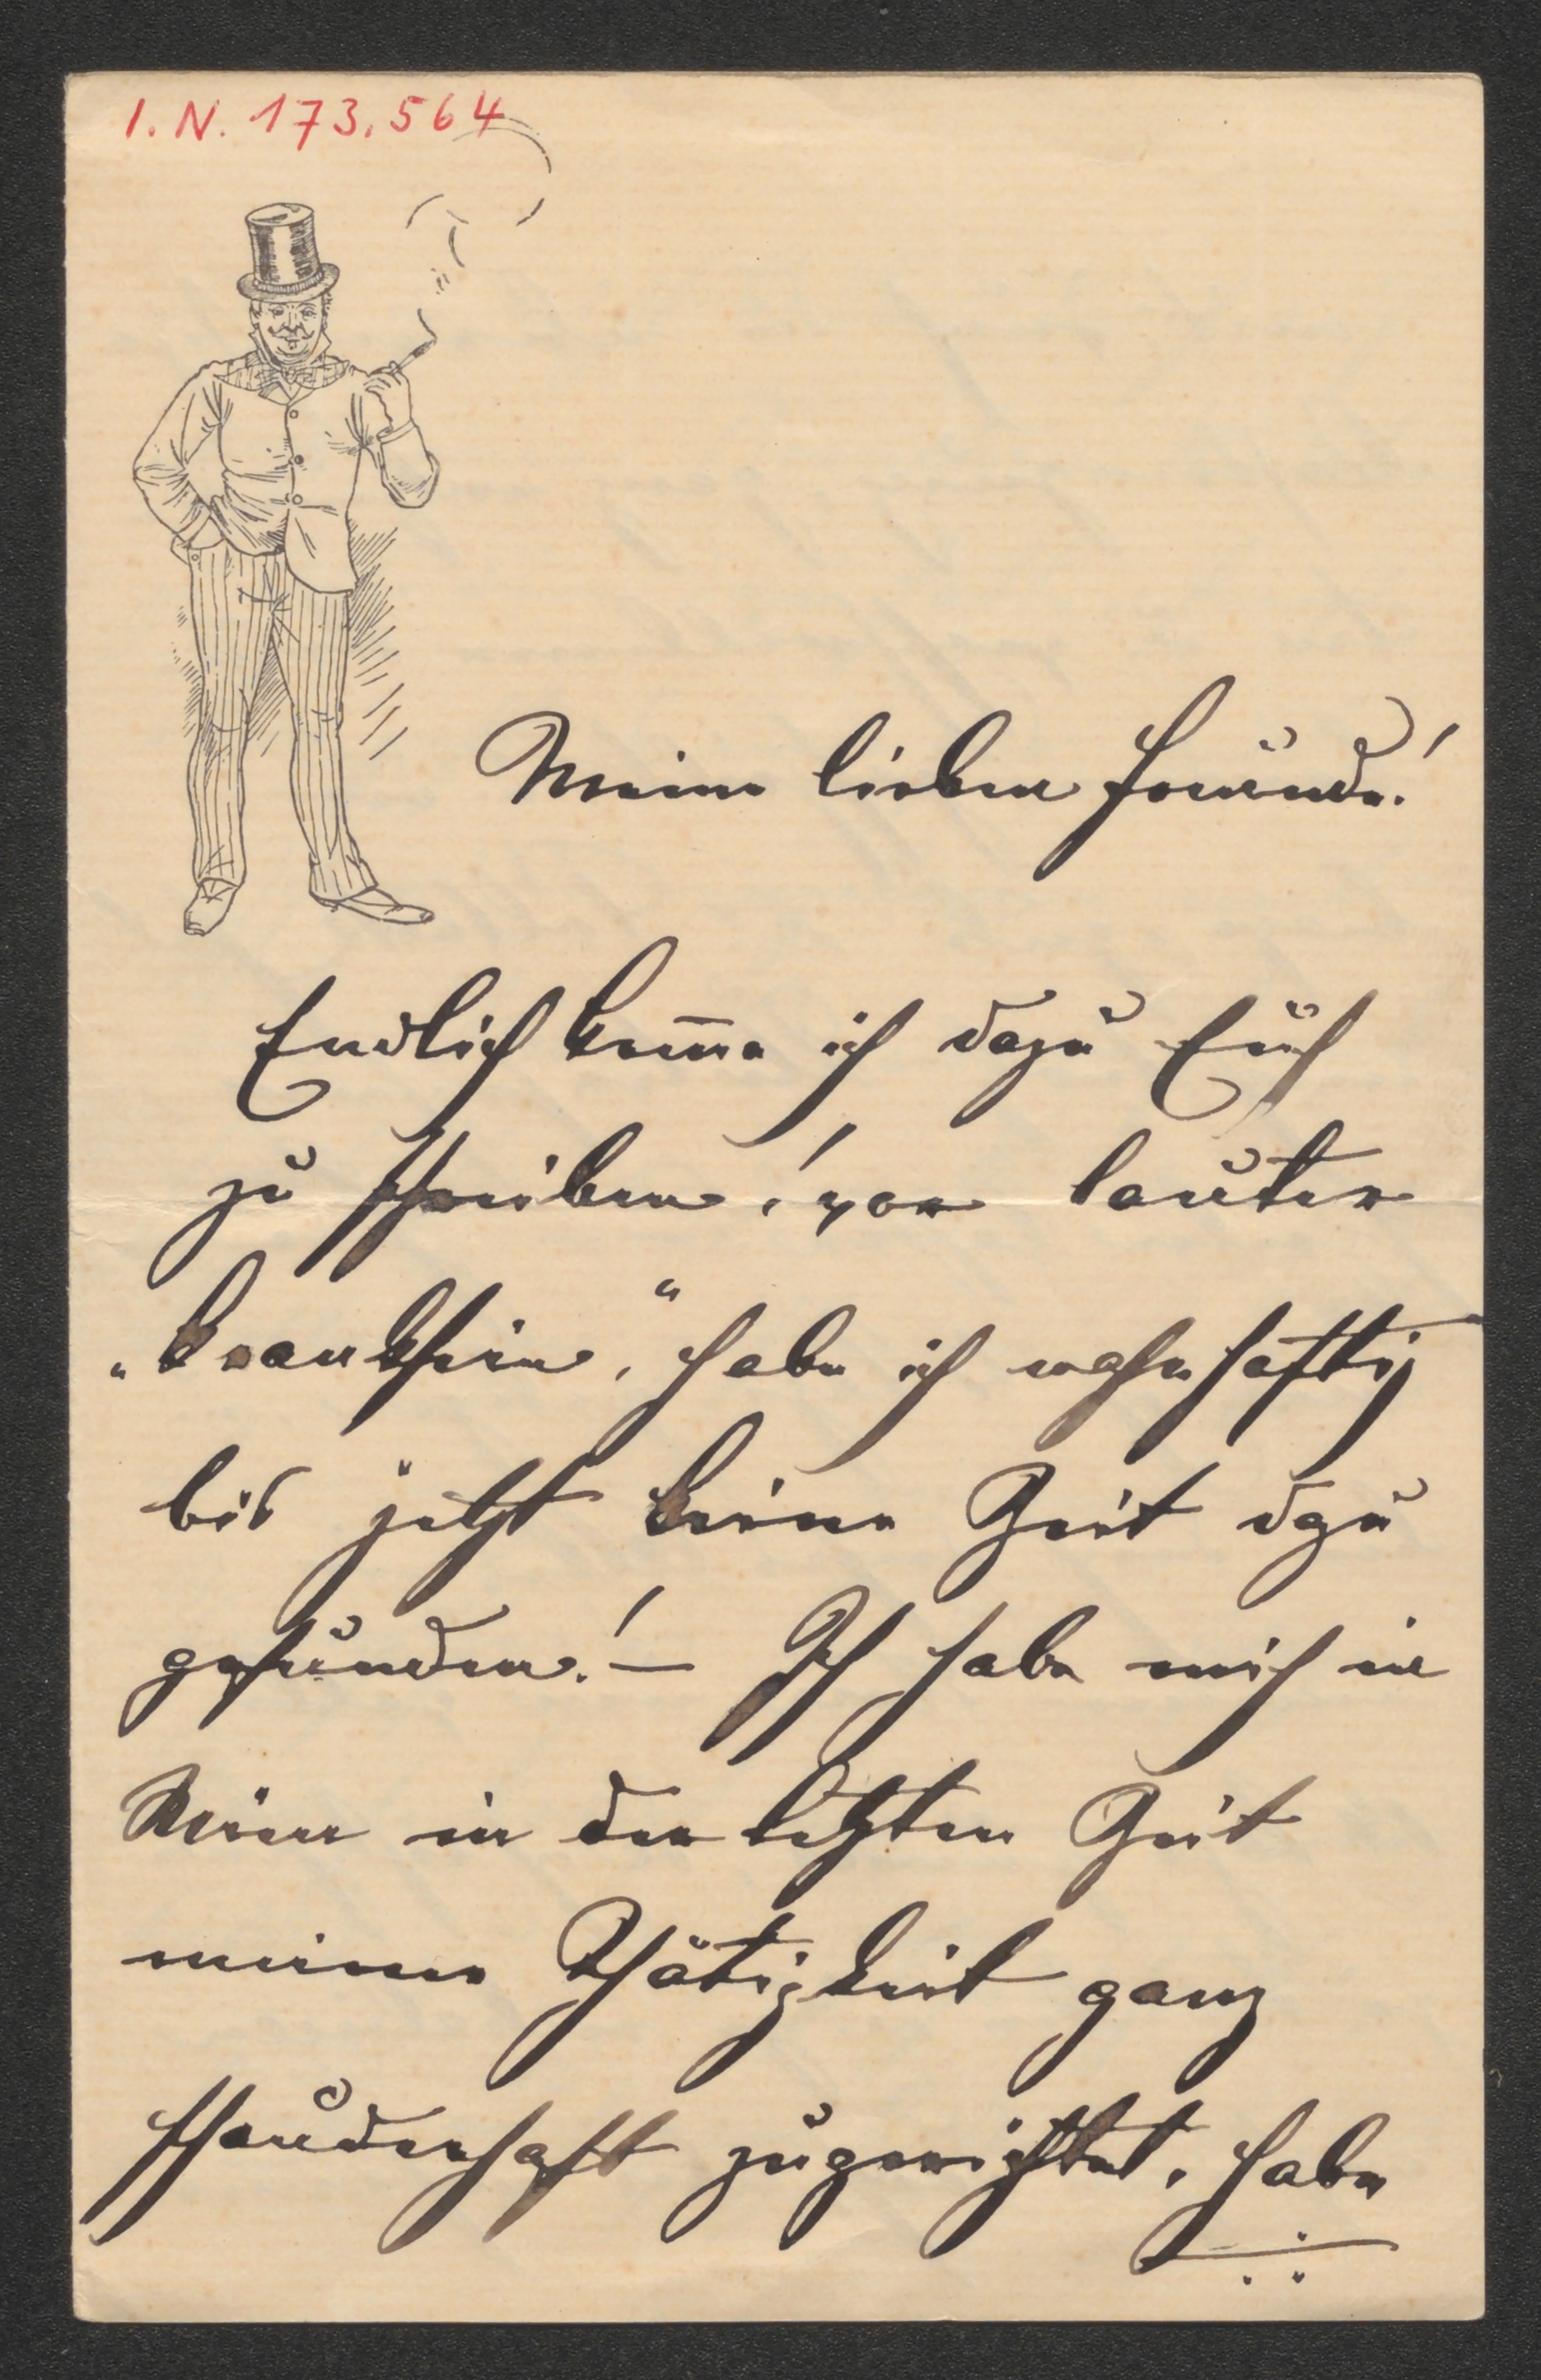 I. N. 173.564
Meine lieben Freunde!
Endlich kom̅e ich dazu Euch
zu schreiben, vor lauter
„Kranksein", habe ich wahrhaftig
bis jetzt keine Zeit dazu
gefunden! — Ich habe mich in
Wien in der letzten Zeit
meiner Thätigkeit ganz
schauderhaft zugerichtet, habe